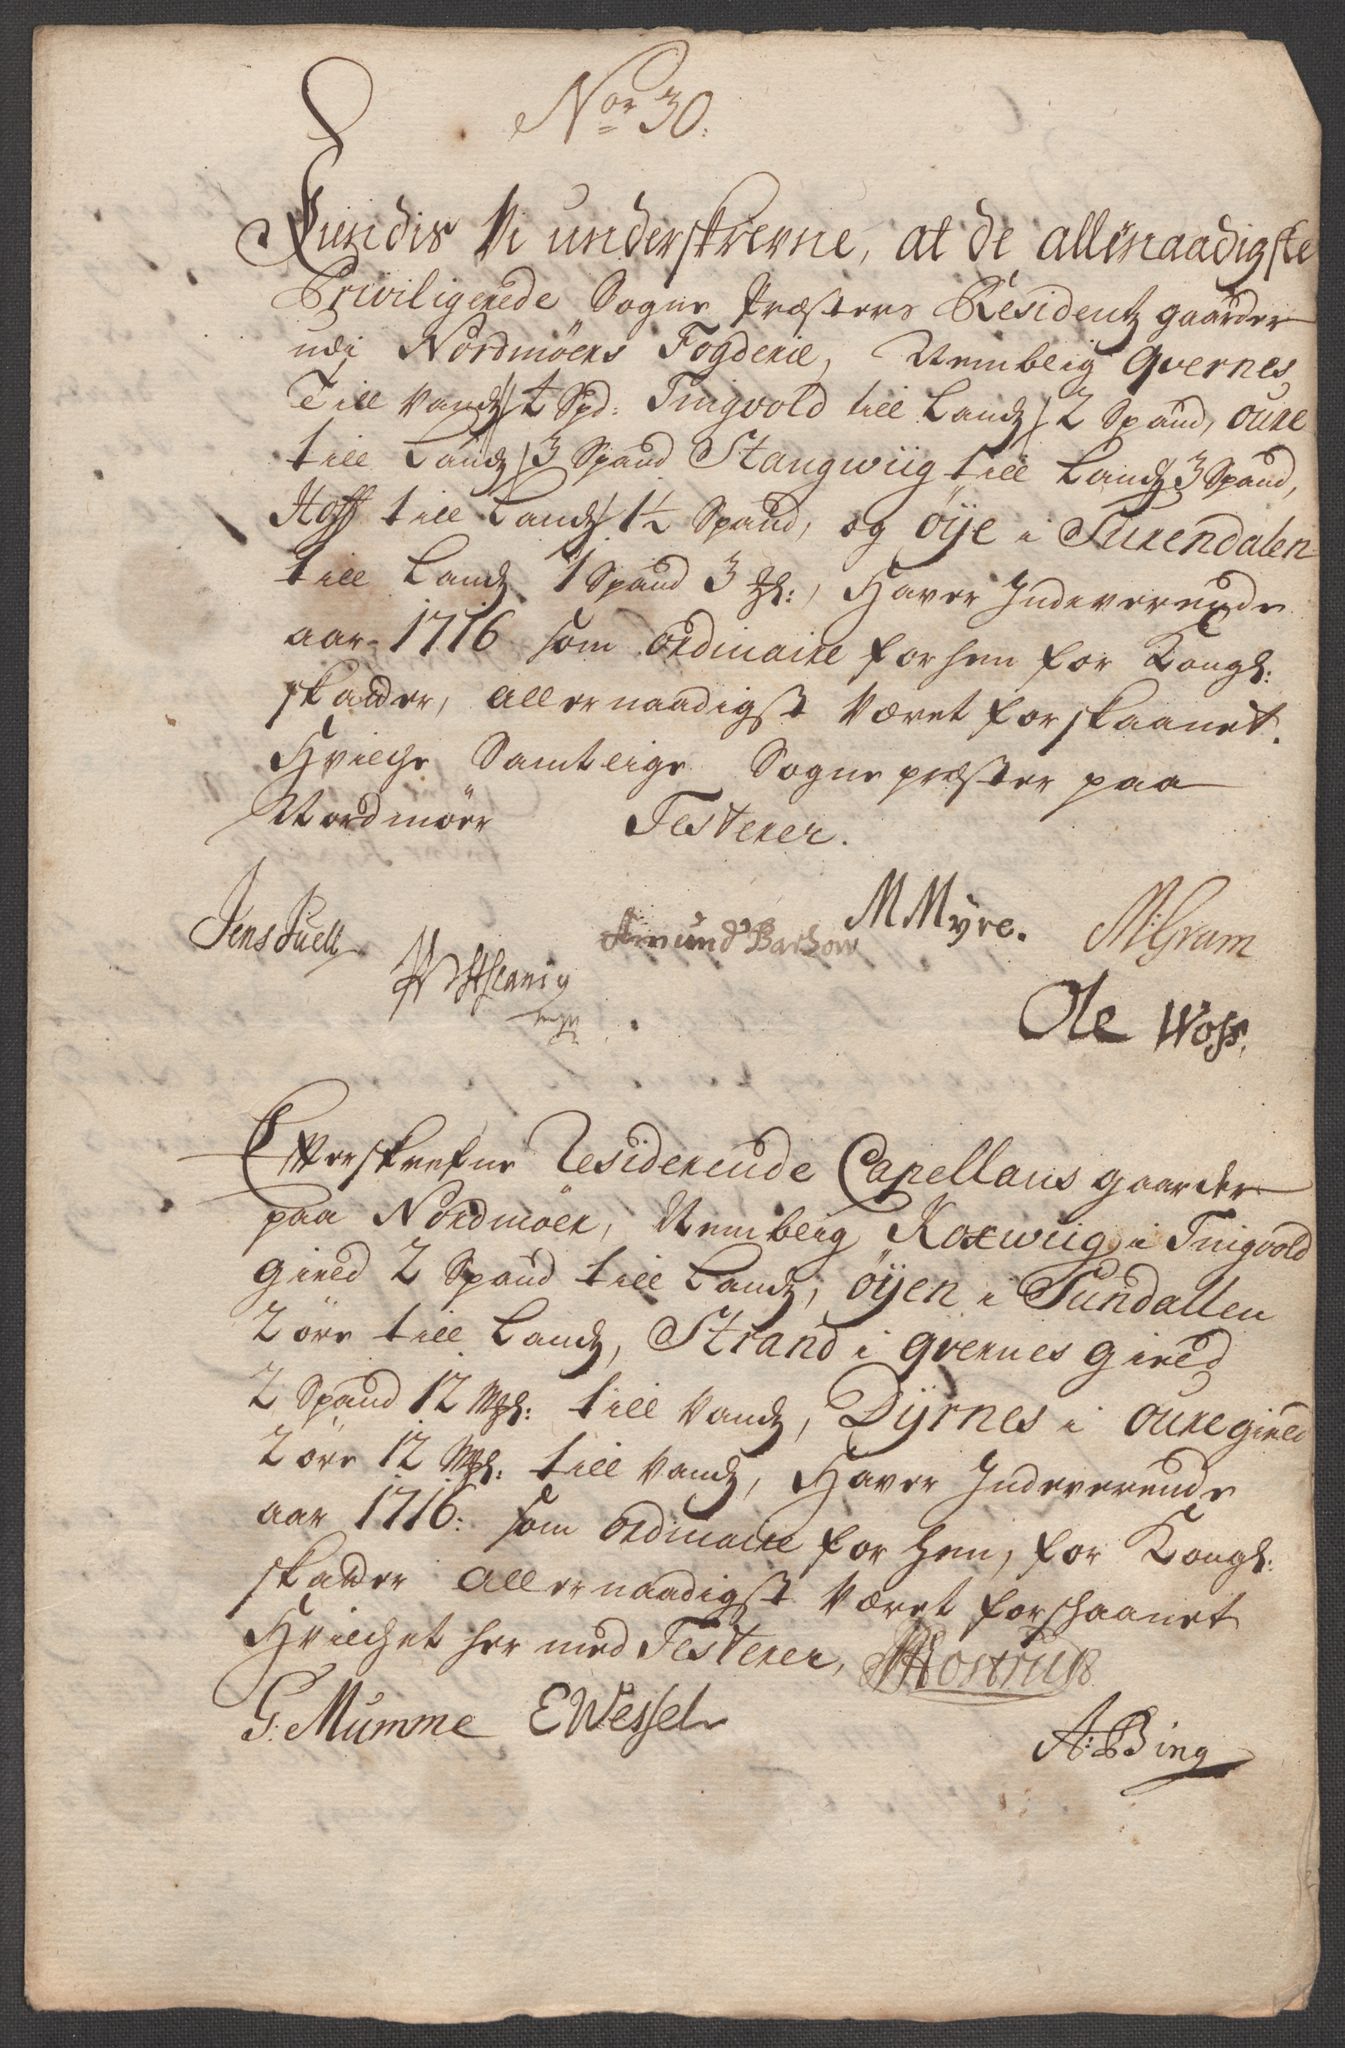 No: 30.
Kiendis Vi underskrevne, at de allernaadigste
Priviligerede Sogne Præsters Residentz gaarder
udj Nordmöers Fogderie, Nemblig Qvernes
Till Vandz 2 Spd: Tingvold till Landz 2 Spand, Oure
till Landz 3 Spand Stangwiig till Landz 3 Spand,
Hoff till Landz 1½ Spand, og öÿe i Surendalen
till Landz 1 Spand 3 , Haver Indeverende
aar 1716 som ordinaire forhen for Kongl:
skatder, allernaadigst Været forskaanet.
Hvilche Samtlige Sogne præster paa
Nordmöer Testerer.
Jens Juell
Amund Barhow MMyre. M: Gram
Ole Woss.
Efterskrefne Residerende Capellans gaarder
paa Nordmöer, Nemblig Koxwiig i Tingvold
gield 2 Spand till Landz, öÿen i Sundallen
2 öre till Landz, Strand i Qvernes gield
2 Spand 12 Mkl: till Vandz, Dÿrnes i Oure gield
2 öre 12 Mkl: till Vandz, Haver Indeverende
aar 1716: som ordinaire for hen, for Kongl:
skatder allernaadigst Været forschaanet
Hvilchet her med Testerer, Hostrup
G: Mumme EWessel
A: Bing